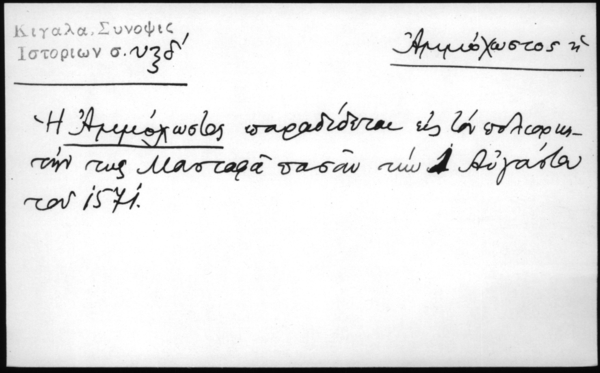 Κιγαλα, Συνοψις
Ιστοριων σ. υξδ́
Ἀμμόχωστος ἡ
Ἡ Ἀμμόχωστος παραδίδεται εἰς τὸν πολιορκη-
τήν της Μουσταφᾶ πασᾶν τὴν 1 Αὐγούστου
τοῦ 1571.